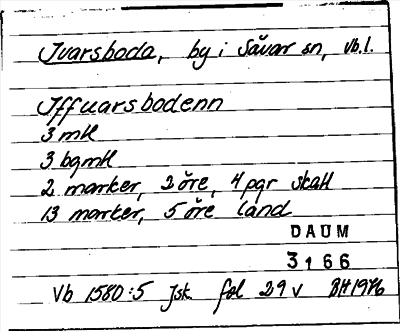 Ivarsboda, by i Sävar sn, Vb.l.
Iffuarsbodenn
3 mkl
3 bgmkl
2 marker, 2 öre, 4 pgr skatt
13 marker, 5 öre land
DAUM
3166
Vb 1580:5 Jsk. fol 29 v BH 1976